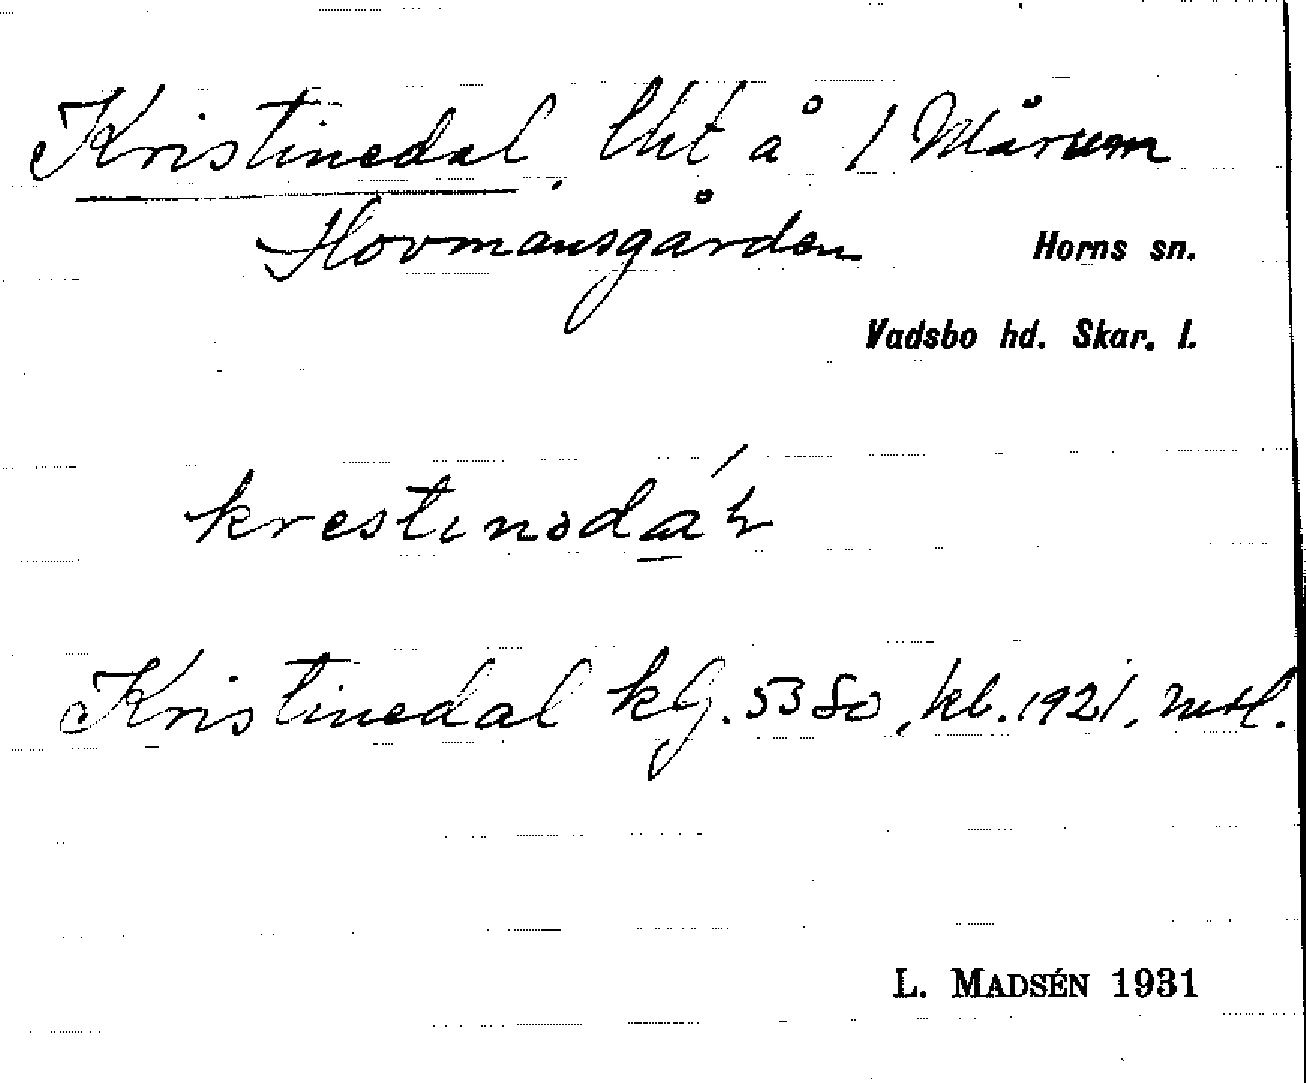 Kristinedal, lht å 1 Mårum
Hovmansgården
Horns sn.
Vadsbo hd. Skar. l.
Kristinedal kG. 5380, kb. 1921, mtl.
L. MADSÉN 1931